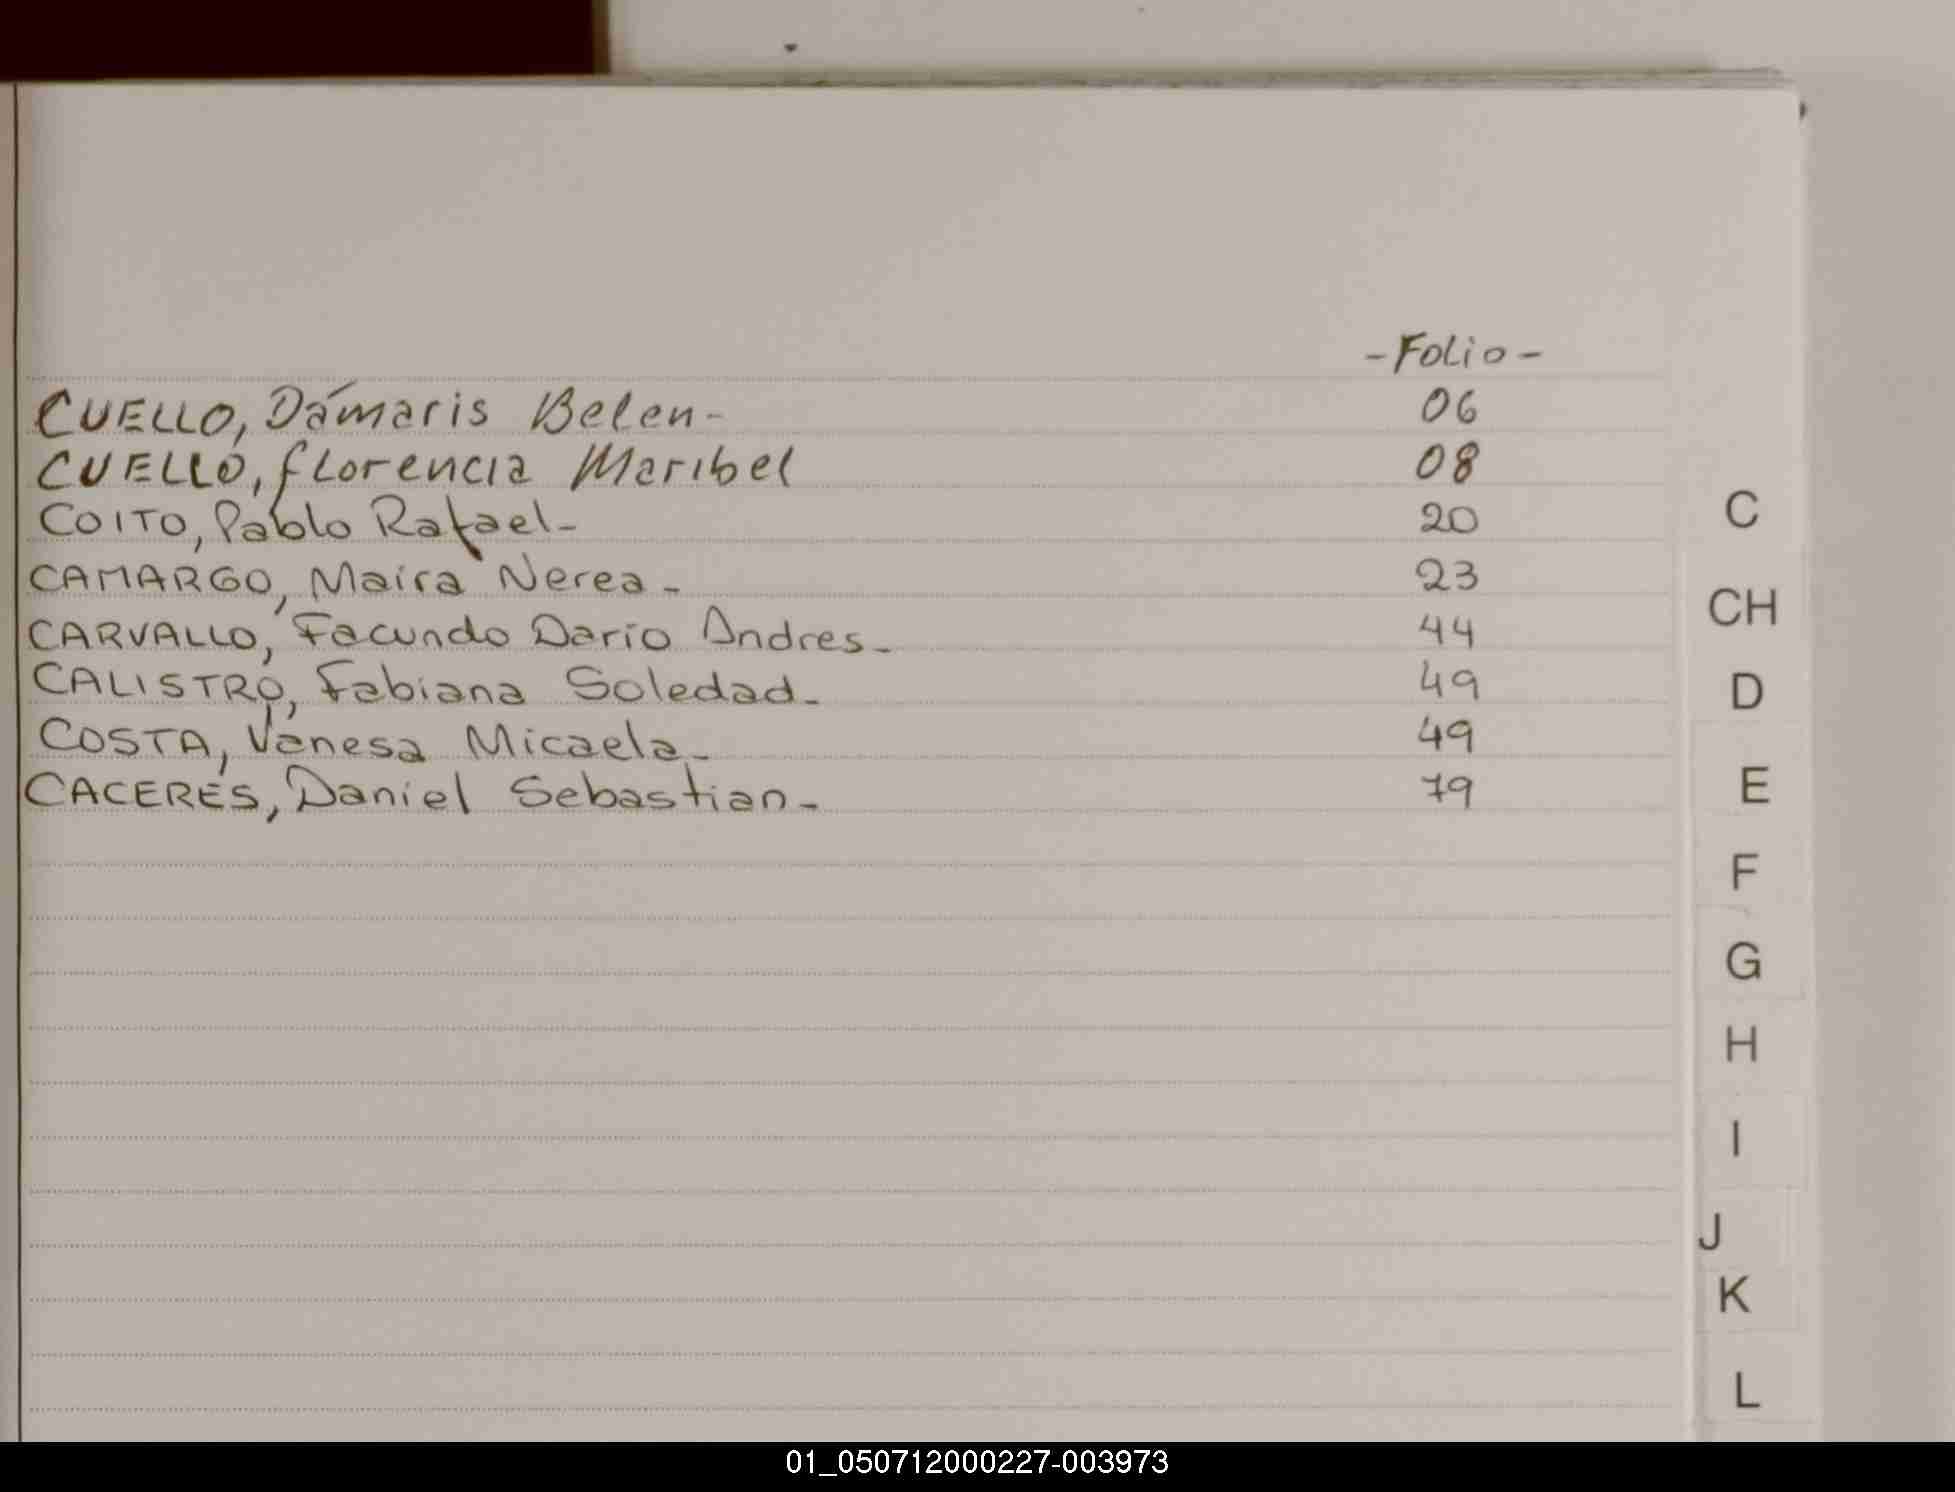 -Folio-
CUELLO, Dámaris Belen- 06
CUELLO, Florencia Maribel 08
COITO, Pablo Rafael- 20
CAMARGO, Maira Nerea- 23
CARVALLO, Facundo Dario Andres- 44
CALISTRO, Fabiana Soledad- 49
COSTA, Vanesa Micaela- 49
CACERES, Daniel Sebastian- 79
C
CH
D
E
F
G
H
I
J
K
L
01_050712000227-003973